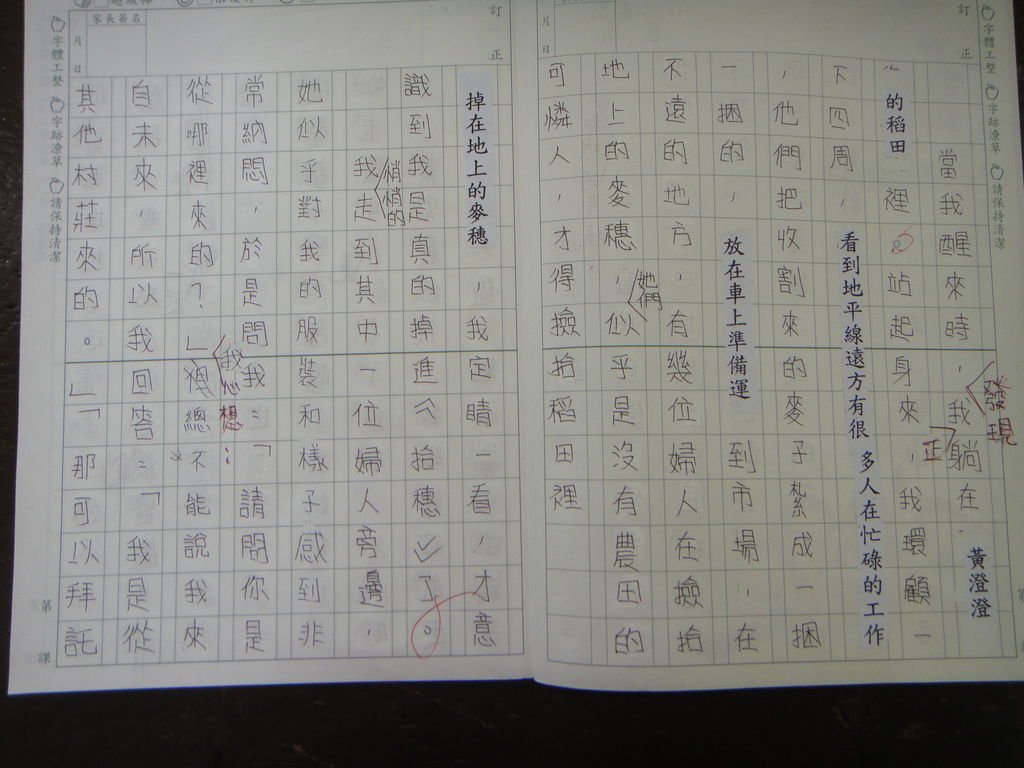 訂正
月 日
字體工整 字跡潦草 請保持清潔
當我醒來時，我發現正躺在黃澄澄
的稻田裡。站起身來，我環顧一
下四周，看到地平線遠方有很多人在忙碌的工作
，他們把收割來的麥子紮成一捆
一捆的，放在車上準備運到市場，在
不遠的地方，有幾位婦人在撿拾
地上的麥穗，她們似乎是沒有農田的
可憐人，才得撿拾稻田裡
訂正
家長簽名
月 日
掉在地上的麥穗，我定睛一看，才意
識到我是真的掉進ㄍ拾穗了。
我悄悄的走到其中一位婦人旁邊，
她似乎對我的服裝和樣子感到非
常納悶，於是問我：「請問你是
從哪裡來的？」我心想：總不能說我來
自未來，所以我回答：「我是從
其他村莊來的。」「那可以拜託
字體工整 字跡潦草 請保持清潔
第 課